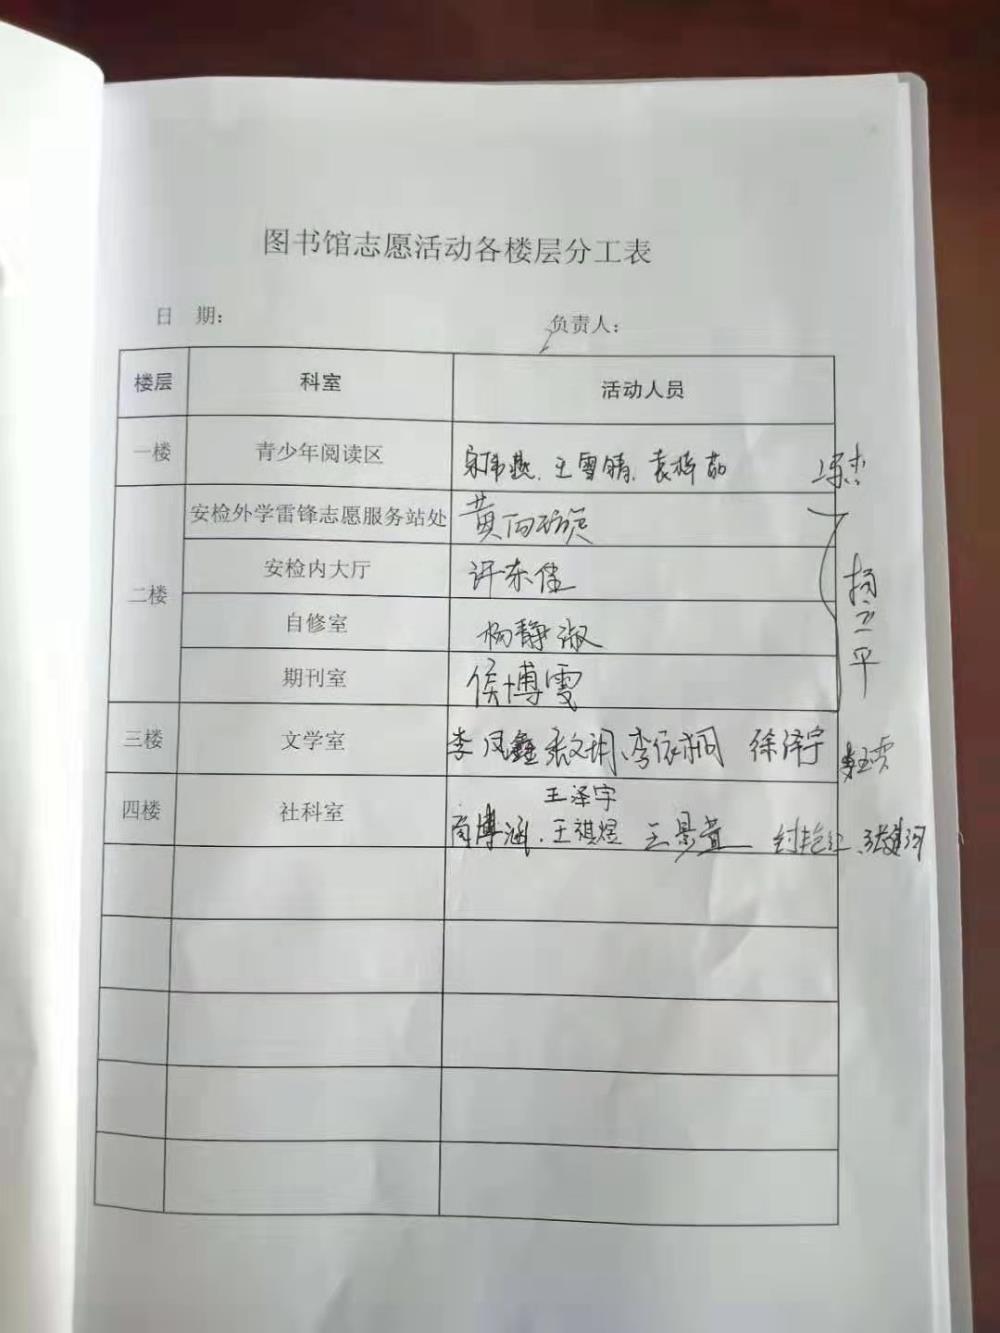 图书馆志愿活动各楼层分工表
日 期： 负责人：
楼层 科室 活动人员
一楼 青少年阅读区 宋伟燕、王雪晴、袁梓茹
二楼
安检外学雷锋志愿服务站处 黄
安检内大厅 许东佳
自修室 杨静淑
期刊室 侯博雯
杨立平
三楼 文学室 李凤鑫 张文玥、李依桐 徐泽宇
四楼 社科室 王泽宇
商博涵、王祺煜 王景萱